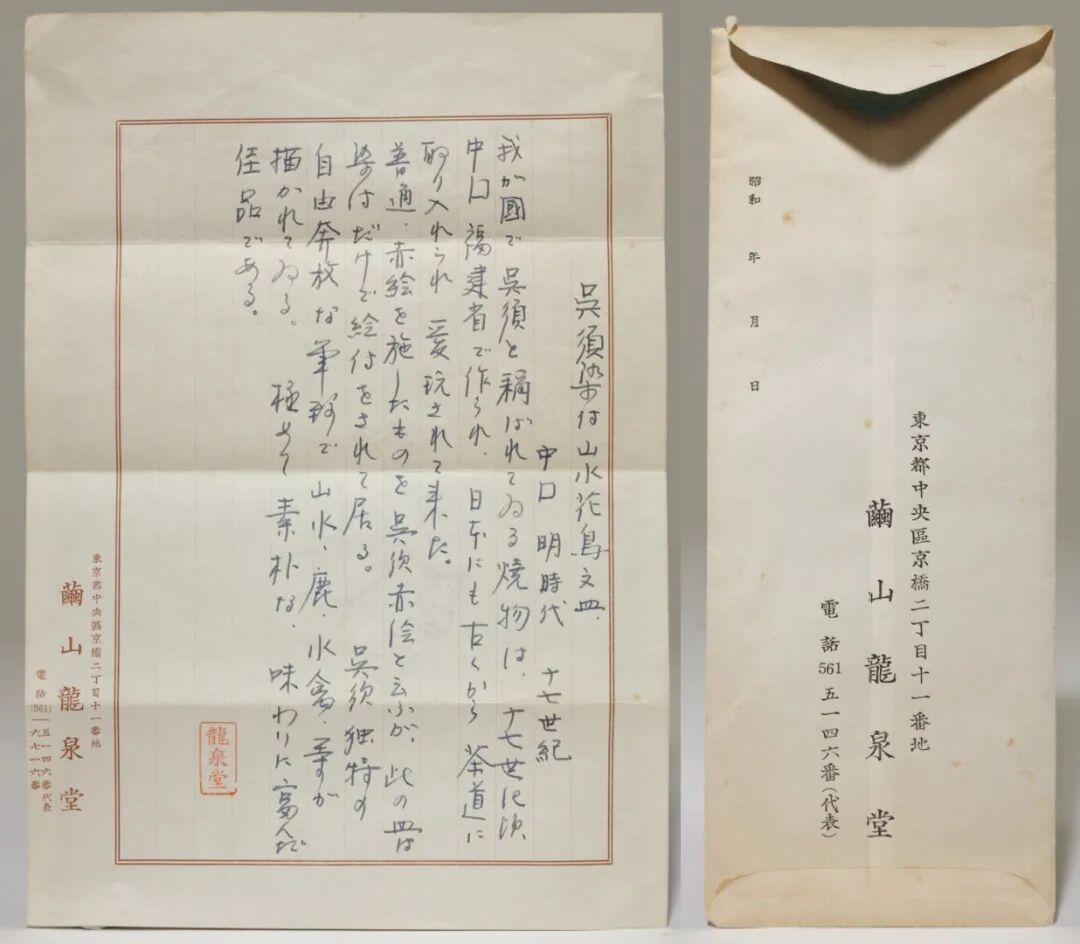 呉須染付山水花鳥文皿.
中囗 明時代 十七世紀
我が國で呉須と稱ばれてゐる焼物は、十七世紀頃、
中囗 福建省で作られ、日本にも古くから茶道に
取り入れられ 愛玩されて来た。
普通、赤絵を施したものを呉須赤絵と云ふが、此の皿は
染付だけで絵付をされて居る。 呉須独特の
自由奔放な筆致で 山水、鹿、水禽、等が
描かれてゐる。 極めて素朴な、味わいに富んだ
佳品である。
龍泉堂
東京都中央區京橋二丁目十一番地
繭山龍泉堂
電話(561)五一四六番代表
一六七一六番
昭和 年 月 日
東京都中央區京橋二丁目十一番地
繭山龍泉堂
電話561五一四六番(代表)